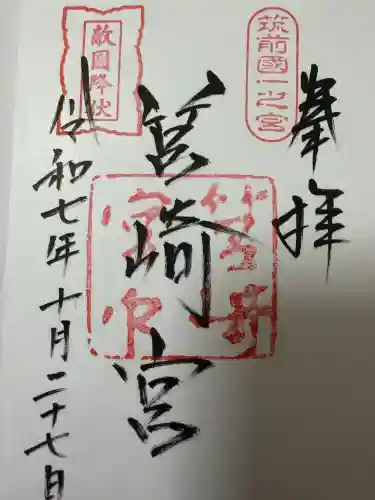 奉拝
筑前國一之宮
筥崎宮
敵國降伏
令和七年十月二十七日